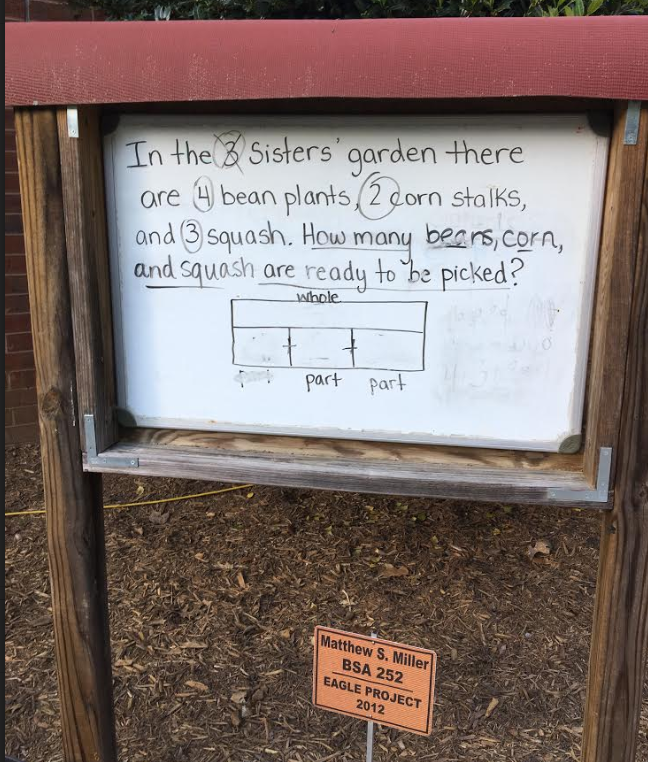 In the 3 Sisters' garden there
are 4 bean plants, 2 corn stalks,
and 3 squash. How many beans, corn,
and squash are ready to be picked?
whole
part part
Matthew S. Miller
BSA 252
EAGLE PROJECT
2012